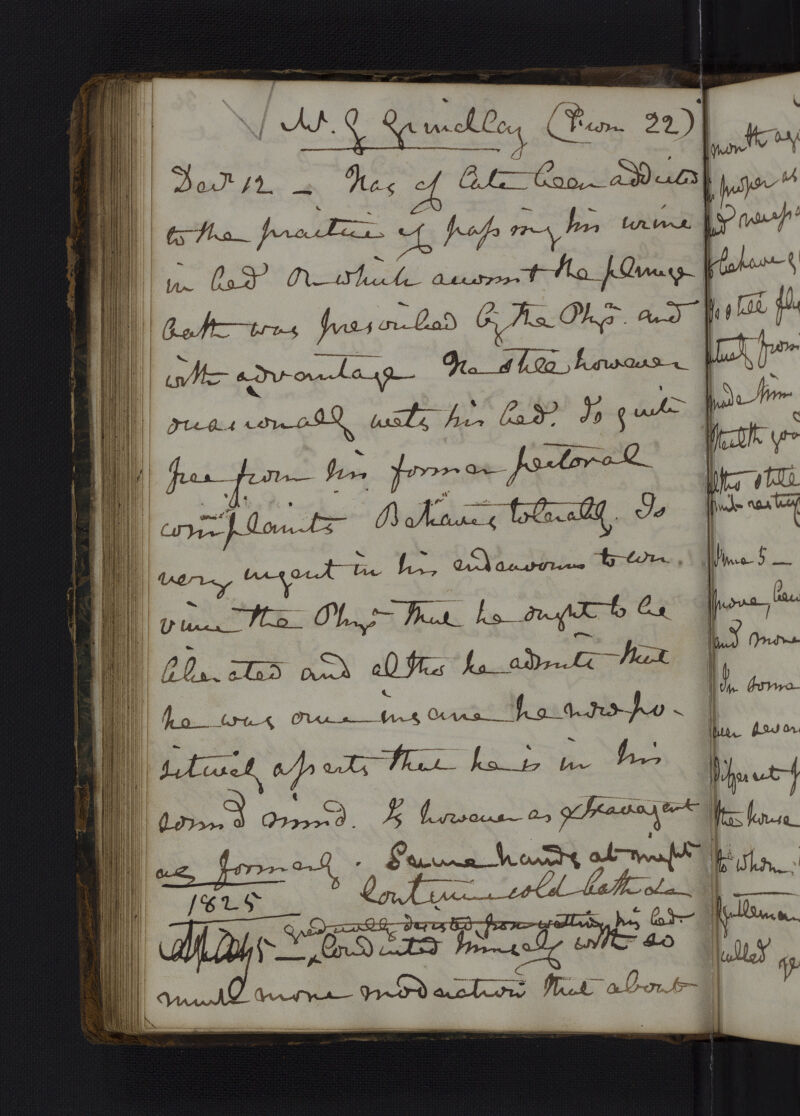 Mr. G Grindlay (From 22)
Decr 12 - Has of late been addicted
to the practice of passing his urine
in bed On which account the plunge
bath was prescribed by the Physn. and
with advantage He still however
occasionally wets his bed. Is quite
free from his former pectoral
complaints Behaves tolerably. Is
very urgent in his endeavours to con-
vince the Physn that he ought to be
liberated and altho he admits that
he was once insane he now po-
sitively asserts that he is in his
sound mind. Is however as extravagant
as formerly. Secure hands at night
Continue cold bath
1825
gradually desisted from wetting his bed.
5 - Conducted himself with so
much more moderation that about
month ago
proper as
behave
still
from
made him
health
altho still
June 5 -
and more
In some
different
the house
to whom
gentleman
called